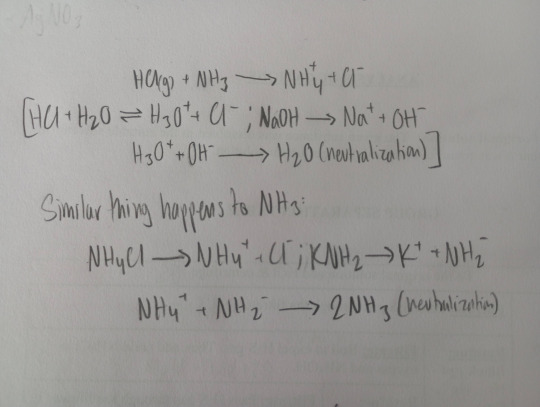 AgNO₃
HCl(g) + NH₃ ⟶ NH₄⁺ + Cl⁻
[HCl + H₂O ⇌ H₃O⁺ + Cl⁻ ; NaOH ⟶ Na⁺ + OH⁻
H₃O⁺ + OH⁻ ⟶ H₂O (neutralization)]
Similar thing happens to NH₃:
NH₄Cl ⟶ NH₄⁺ + Cl⁻ ; KNH₂ ⟶ K⁺ + NH₂⁻
NH₄⁺ + NH₂⁻ ⟶ 2NH₃ (neutralization)